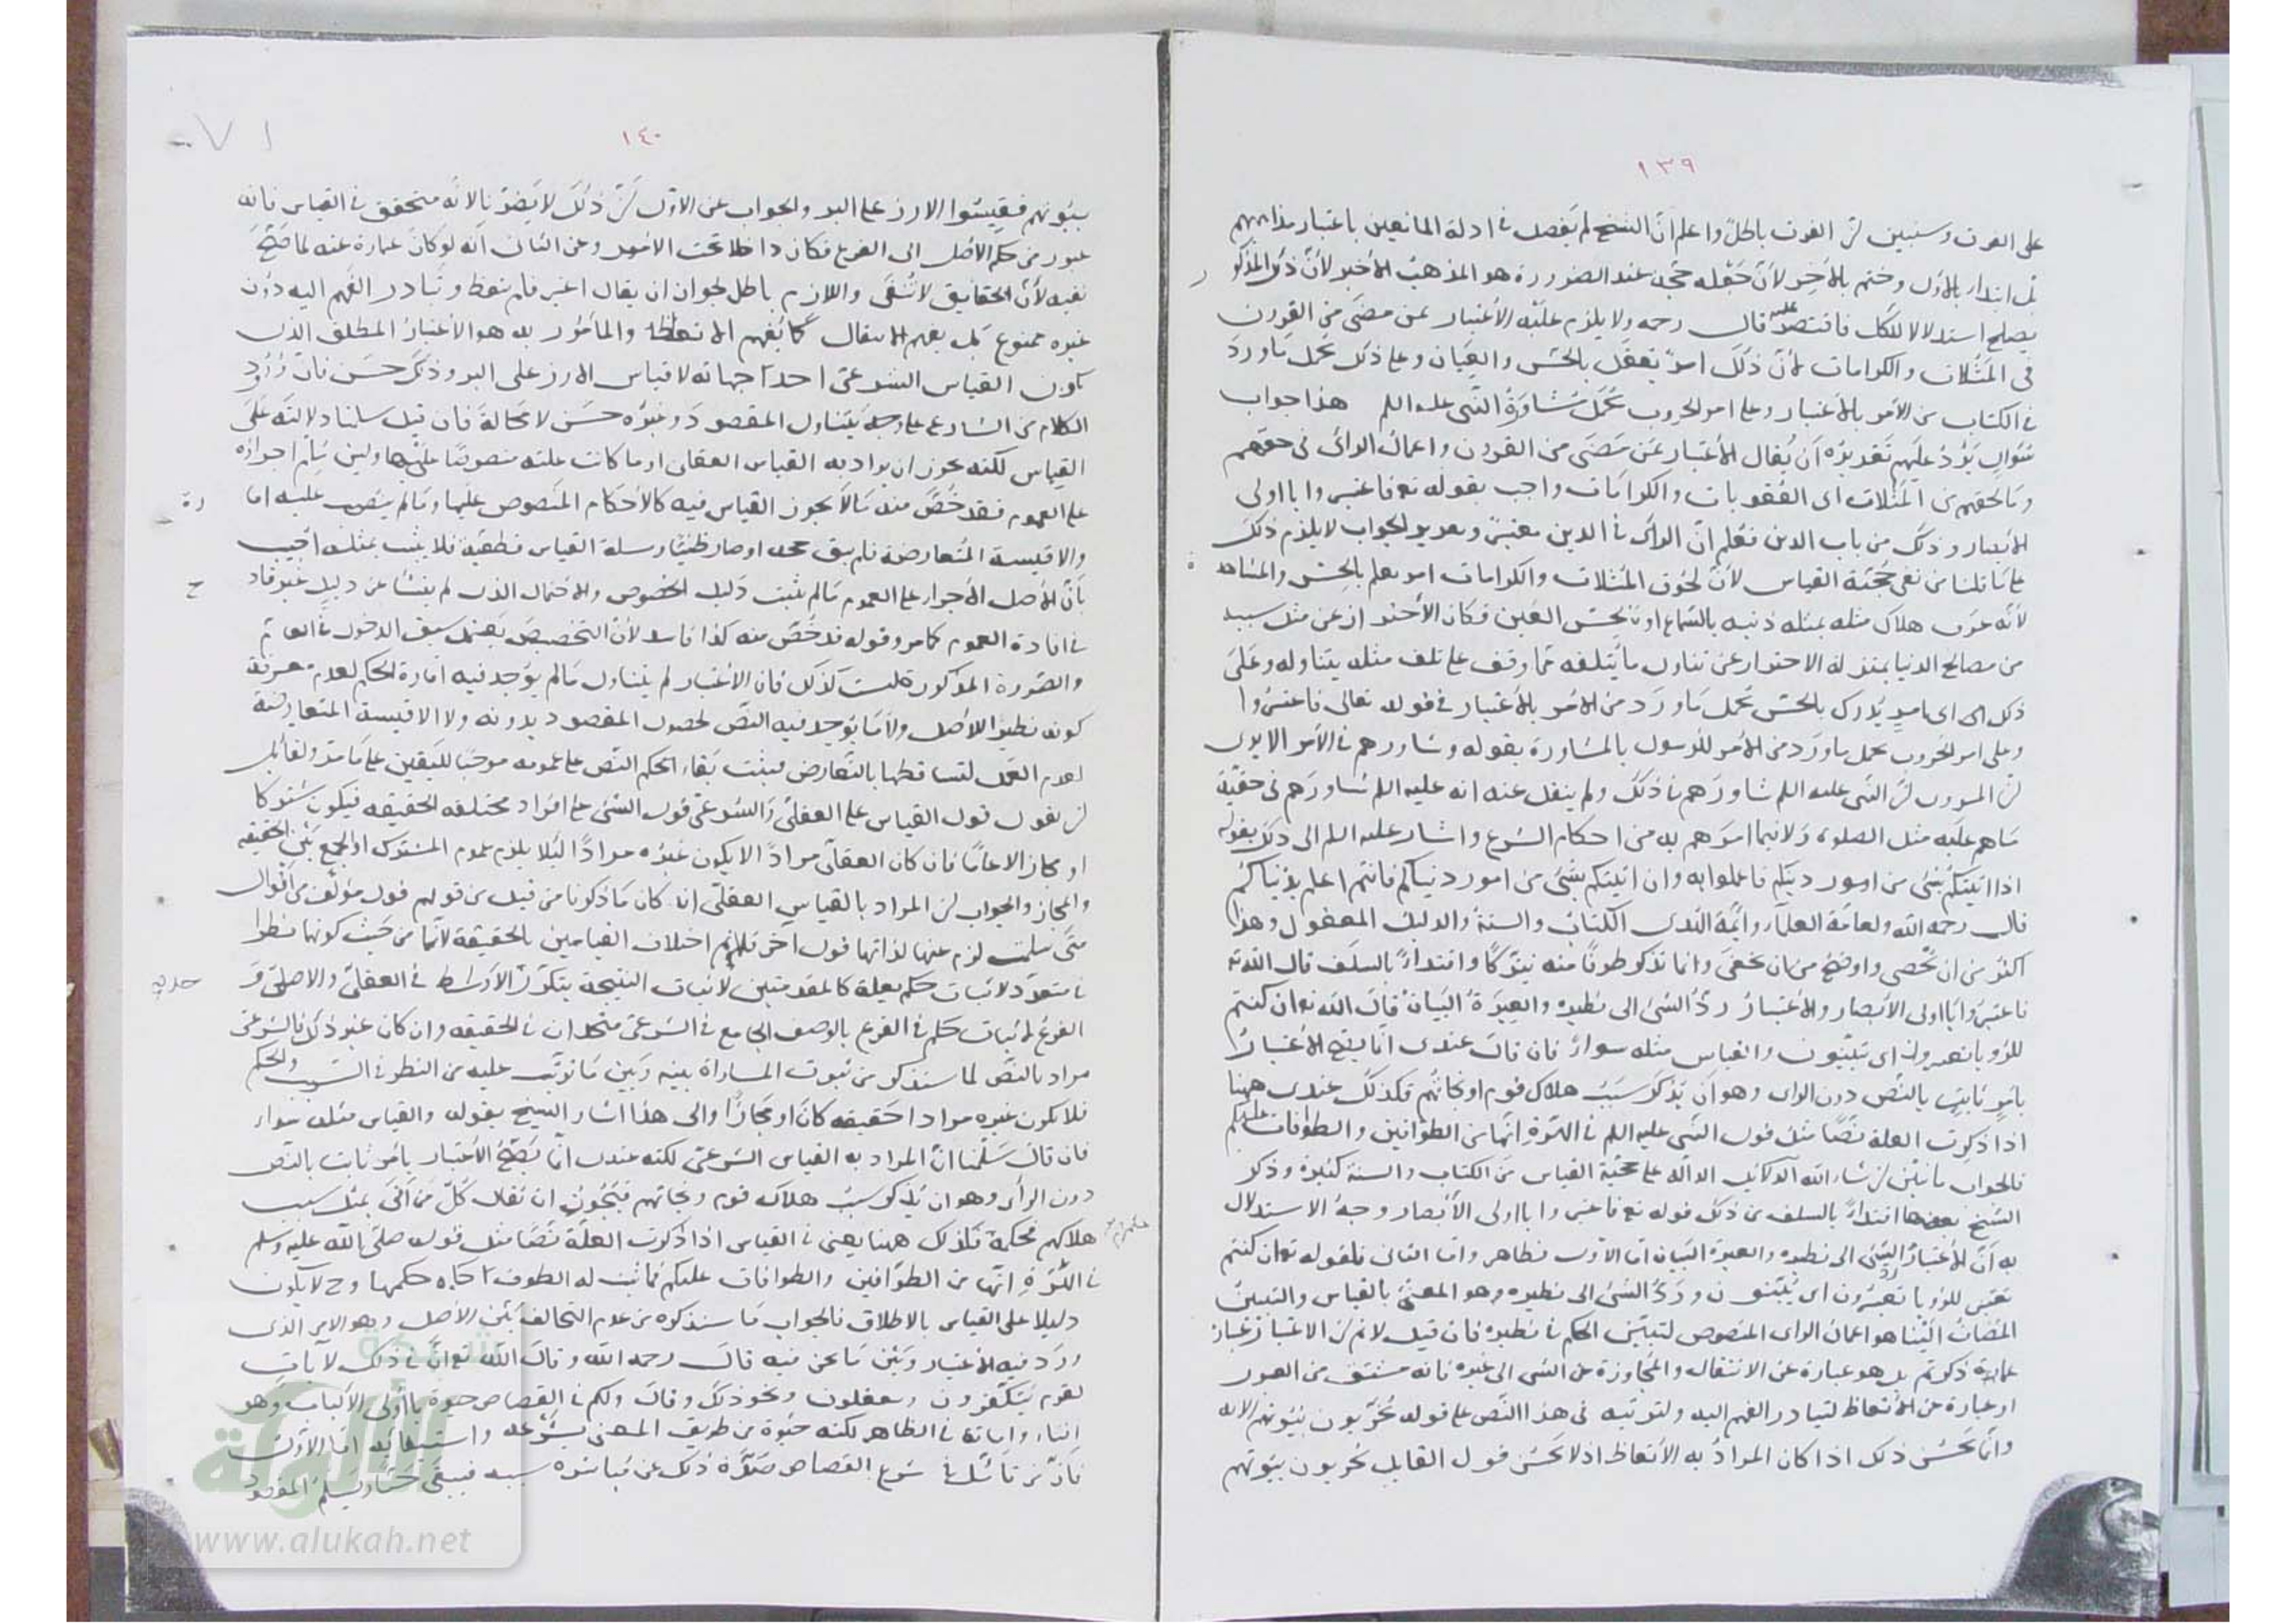 ١٣٩
على الفرق وسنبين لن الفرق باطل واعلم ان الشيخ لم يفصل في ادلة المانعين باعتبار مذاهبهم
بل ابتدا بالاول وختم بالاخر لان جعله حجة عند الضرورة هو المذهب الاخير لان ذلك المذكور
يصلح استدلالا للكل فاقتصر عليه قال رحمه ولا يلزم عليه الاعتبار بمن مضى من القرون
في المثلات والكرامات لان ذلك امر يعقل بالحس والعيان وعلى ذلك يحمل ما ورد
في الكتاب من الامر بالاعتبار وعلى امر الحروب يحمل مشاورة النبي عليه اللم هذا جواب
سؤال يرد عليهم تقديره ان يقال الاعتبار بمن مضى من القرون واعمال الراى في حقهم
وما لحقهم من المثلات اى العقوبات والكرامات واجب بقوله تع فاعتبروا يا اولى
الابصار وذلك من باب الدين فعلم ان الراى في الدين معتبر وتقرير الجواب لا يلزم ذلك
على ما قلنا من نفى حجية القياس لان لحوق المثلات والكرامات امر يعلم بالحس والمشاهدة
لانه عرف هلاك مثله بمثله ذنبه بالسماع او بحس العين فكان الاحتراز عن مثل سببه
من مصالح الدنيا بمنزلة الاحتراز عن تناول ما يتلفه مما وقف على تلف مثله بتناوله وعلى
ذلك اى اى ما يدرك بالحس يحمل ما ورد من الامر بالاعتبار في قوله تعالى فاعتبروا
وعلى امر الحروب يحمل ما ورد من الامر للرسول بالمشاورة بقوله وشاورهم في الامر الا يرى
لن المروى لن النبى عليه اللم شاورهم في ذلك ولم ينقل عنه انه عليه اللم شاورهم في حقيقة
ما هم عليه مثل الصلوة ولا فيما امرهم به من احكام الشرع واشار عليه اللم الى ذلك بقوله
اذا اتيتكم بشئ من امور دينكم فاعملوا به وان اتيتكم بشئ من امور دنياكم فانتم اعلم بدنياكم
قال رحمه الله ولعامة العلماء وائمة الهدى الكتاب والسنة والدليل المعقول وهذا
اكثر من ان تحصى واوضح من ان تخفى وانما نذكر طرفا منه تبركا واقتداء بالسلف قال الله تع
فاعتبروا يا اولى الابصار والاعتبار رد الشئ الى نظيره والعبرة البيان قال الله تع ان كنتم
للرؤيا تعبرون اى تبينون والقياس مثله سواء فان قال عندى انما يصح الاعتبار
بامر ثابت بالنص دون الراى وهو ان يذكر سبب هلاك قوم او نجاتهم فكذلك عندى ههنا
اذا ذكرت العلة نصا مثل قول النبى عليه اللم في الهرة انها من الطوافين والطوافات عليكم
فالجواب ما نبين لن شاء الله الدلايل الدالة على حجية القياس من الكتاب والسنة كثيرة وذكر
الشيخ بعضها اقتداء بالسلف من ذلك قوله تع فاعتبروا يا اولى الابصار وجه الاستدلال
به ان الاعتبار رد الشئ الى نظيره والعبرة البيان اما الاول فظاهر واما الثانى فلقوله تع ان كنتم
للرؤيا تعبرون اى تبينون ورد الشئ الى نظيره وهو المعنى بالقياس والتبيين
المضاف الينا هو اعمال الراى المنصوص لتبيين الحكم في نظيره فان قيل لا نم لن الاعتبار عبارة
عما ذكرتم بل هو عبارة عن الانتقال والمجاوزة عن الشئ الى غيره فانه مشتق من العبور
او عبارة عن الاتعاظ لتبادر الفهم اليه ولترتبه في هذا النص على قوله يخربون بيوتهم الاية
وانما يحسن ذلك اذا كان المراد به الاتعاظ اذ لا يحسن قول القايل يخربون بيوتهم
١٤٠
٧١
بيوتهم فقيسوا الارز على البر والجواب عن الاول لن ذلك لا يضرنا لانه متحقق في القياس فانه
عبور من حكم الاصل الى الفرع فكان داخلا تحت الامر وعن الثانى انه لو كان عبارة عنه لما صح
نفيه لان الحقايق لا تنفى واللازم باطل لجواز ان يقال اعتبر فلم يتعظ وتبادر الفهم اليه دون
غيره ممنوع بل يفهم الانتقال كما يفهم الاتعاظ والمامور به هو الاعتبار المطلق الذى
يكون القياس الشرعى احد جهاته لا قياس الارز على البر وذكر حسن فان ورود
الكلام من الشارع على وجه يتناول المقصود وغيره حسن لا محالة فان قيل سلمنا دلالته على
القياس لكنه يجوز ان يراد به القياس العقلى او ما كانت علته منصوصا عليها ولين سلم اجراؤه
على العموم فقد خص منه ما لا يجوز القياس فيه كالاحكام المنصوص عليها وما لم ينصب عليه امارة
والاقيسة المتعارضة فلم يبق حجة او صار ظنيا ومسئلة القياس قطعية فلا يثبت بمثله اجيب
بان الاصل الاجراء على العموم ما لم يثبت دليل الخصوص والاحتمال الذى لم ينشا عن دليل غير قادح
في افادة العموم كما مر وقوله قد خص منه كذا فاسد لان التخصيص يعتمد سبق الدخول في العام
والصورة المذكورة ليست كذلك فان الاعتبار لم يتناول ما لم يوجد فيه امارة الحكم لعدم معرفة
كونه نظيرا للاصل ولا ما يوجد فيه النص لحصول المقصود بدونه ولا الاقيسة المتعارضة
لعدم العمل لتساقطها بالتعارض فيثبت بقاء الحكم النص على عمومه موجبا لليقين على ما مر ولقائل
لن يقول قول القياس على العقلى والشرعى قول الشئ على افراد مختلفة الحقيقة فيكون مشتركا
او مجازا لا عاما فان كان العقلى مرادا لا يكون غيره مرادا لئلا يلزم عموم المشترك او الجمع بين الحقيقة
والمجاز والجواب لن المراد بالقياس العقلى ان كان ما ذكرنا من قبل من قولهم قول مؤلف من اقوال
متى سلمت لزم عنها لذاتها قول آخر فلا نم اختلاف القياسين بالحقيقة لانها من حيث كونها نظرا
في متعدد لاثبات حكم بعلة كالمقدمتين لاثبات النتيجة بتكرر الاوسط في العقلى والاصل و
الفرع لاثبات حكم في الفرع بالوصف الجامع في الشرعى متحدان في الحقيقة وان كان غير ذلك فالشرعى
مراد بالنص لما سنذكر من ثبوت المساواة بينه وبين ما نرتب عليه من النظر في السبب والحكم
فلا يكون غيره مرادا حقيقة كان او مجازا والى هذا اشار الشيخ بقوله والقياس مثله سواء
فان قال سلمنا ان المراد به القياس الشرعى لكنه عندى انما يصح الاعتبار بامر ثابت بالنص
دون الراى وهو ان يذكر سبب هلاك قوم ونجاتهم فيجوز ان يقال كل من اتى بمثل سبب
هلاكهم فحكمه كذلك ههنا يعنى في القياس اذا ذكرت العلة نصا مثل قوله صلى الله عليه وسلم
في الهرة انها من الطوافين والطوافات عليكم فما ثبت له الطوف اخذ حكمها وح لا يكون
دليلا على القياس بالاطلاق فالجواب ما سنذكره من عدم التخالف بين الاصل وهو الامر الذى
ورد فيه الاعتبار وبين ما نحن فيه قال رحمه الله وقال الله تع ان في ذلك لآيات
لقوم يتفكرون ويعقلون ونحو ذلك وقال ولكم في القصاص حيوة يا اولى الالباب وهو
افناء واماتة في الظاهر لكنه حيوة من طريق المعنى بشرعه واستيفائه اما الاول
فان من تامل في شرع القصاص صده ذلك عن مباشرة سببه فيبقى حيا ويسلم المقصود
شبكة
الألوكة
www.alukah.net